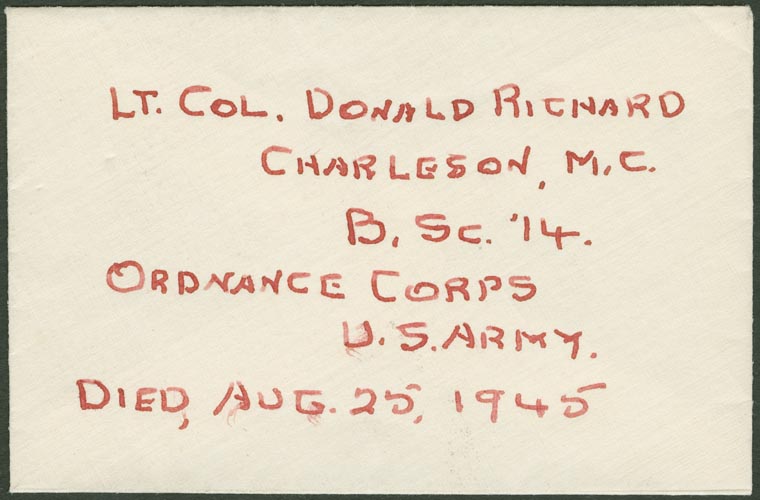 LT. COL. DONALD RICHARD
CHARLESON, M.C.
B. SC. '14.
ORDNANCE CORPS
U.S. ARMY.
DIED, AUG. 25, 1945